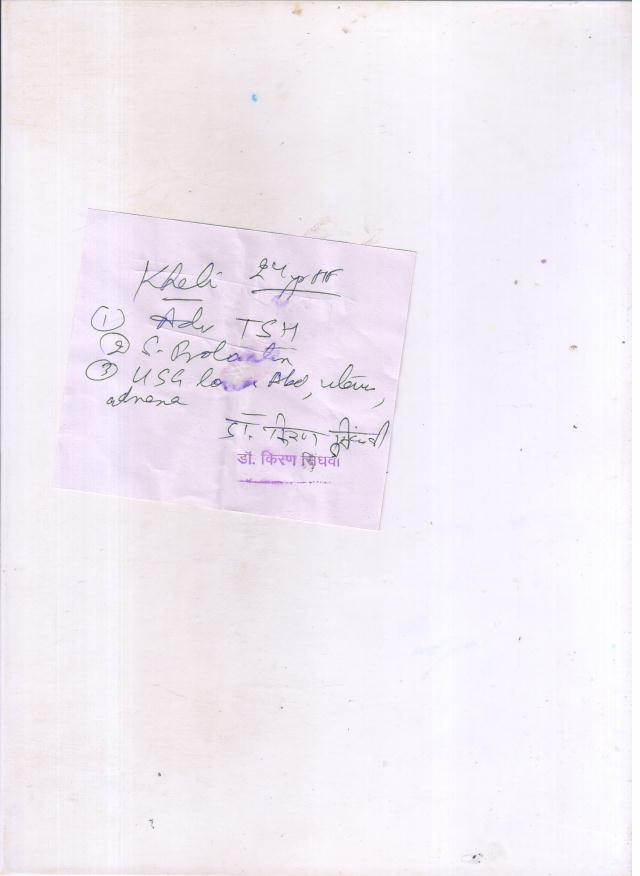 Kheli 24 yr /F
① Adv TSH
② S. Prolactin
③ USG lower Abd, uterus,
adnexa
डॉ. किरण सिंघवी
डॉ. किरण सिंघवी